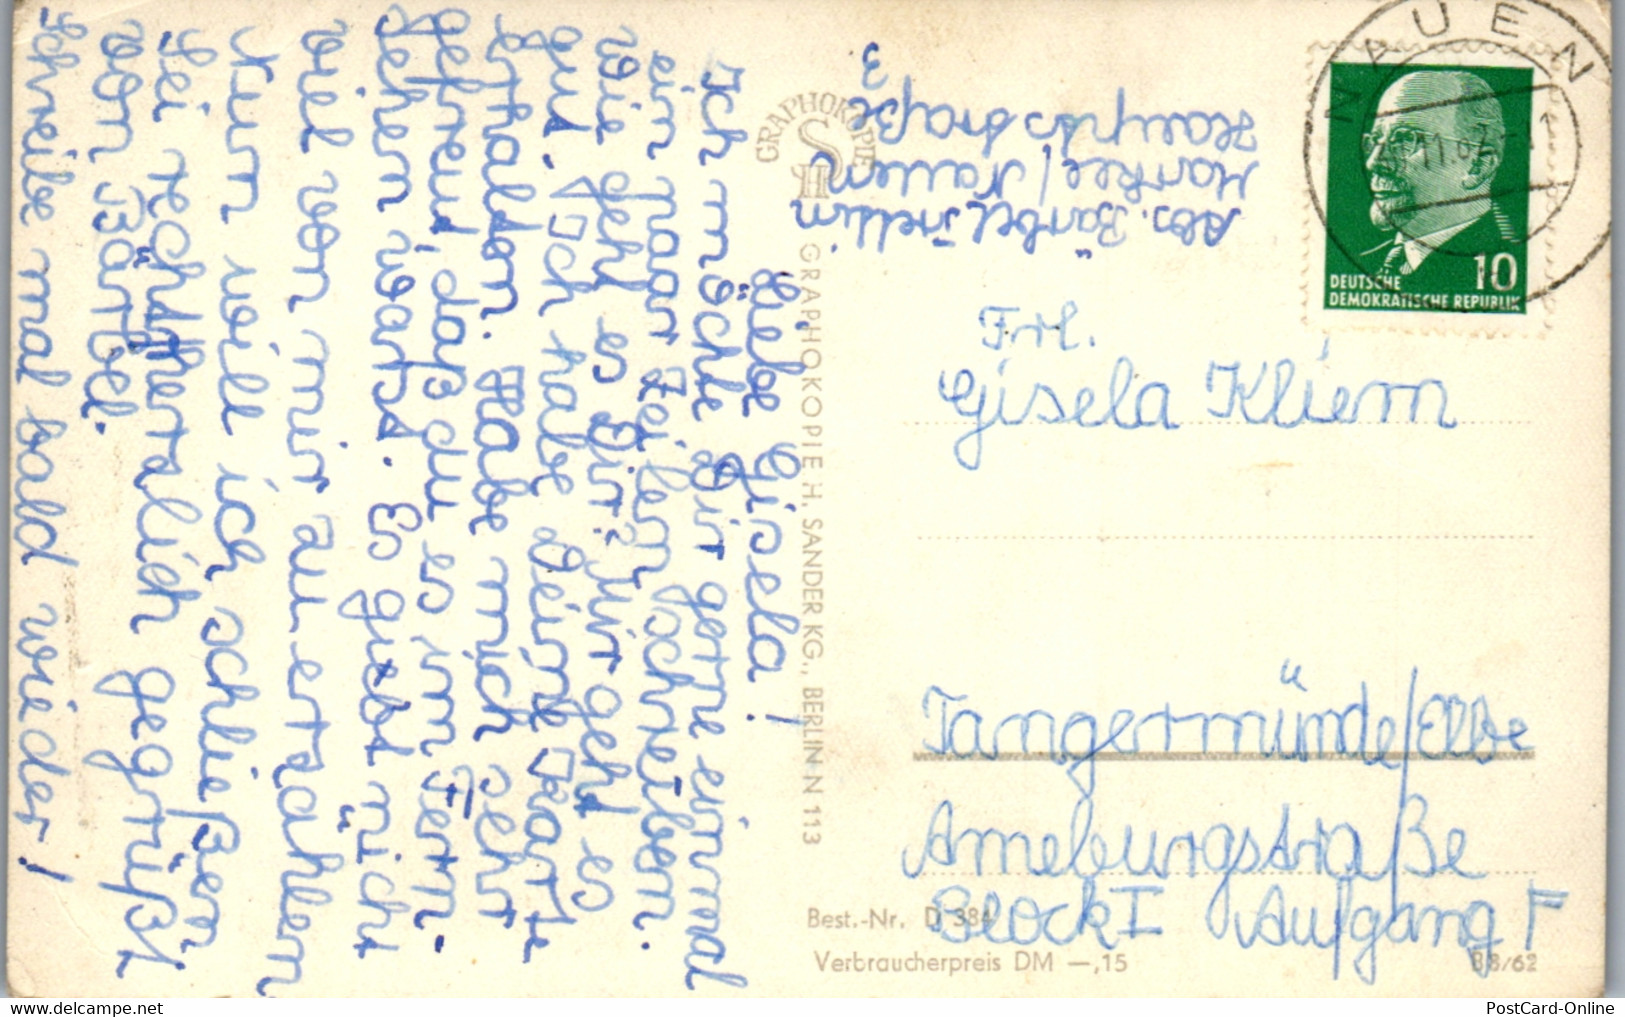 Liebe Gisela!
Ich möchte dir gerne einmal
ein paar Zeilen schreiben.
Wie geht es Dir? Mir geht es
gut. Ich habe Deine Karte
erhalten. Habe mich sehr
gefreut, daß du es im Fern-
sehen warst. Es giebt nicht
viel von mir zu erzählen
Nun will ich schließen
Sei recht herzlich gegrüßt
von Bärbel.
Schreibe mal bald wieder!
Abs. Bärbel
Markee/Nauen
Hauptstraße
3
GRAPHOKOPIE
H
S
GRAPHOKOPIE H. SANDER KG., BERLIN N 113
NAUEN
10
DEUTSCHE
DEMOKRATISCHE REPUBLIK
Frl.
Gisela Kliem
Tangermünde/Elbe
Ameburgstraße
Block I Aufgang F
Best.-Nr. D 384
Verbraucherpreis DM —,15
B8/62
PostCard-Online